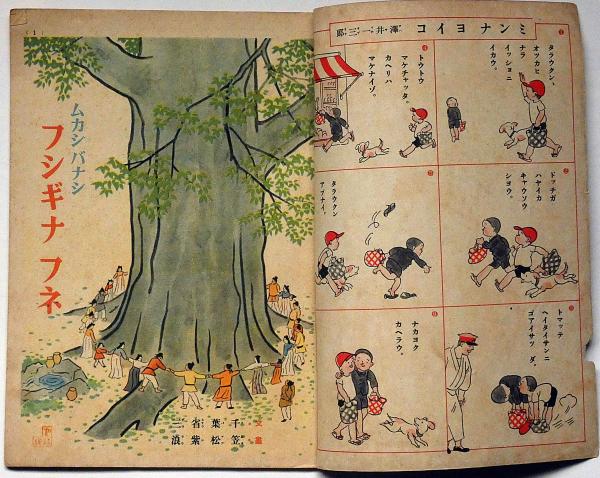 ミンナヨイコ
澤井一三郎
1
タラウクン、
オツカヒ
ナラ
イッショニ
イカウ。
2
ドッチガ
ハヤイカ
キャウソウ
シヨウ。
3
トマッテ
ヘイタイサンニ
ゴアイサツ ダ。
4
トウトウ
マケチャッタ。
カヘリハ
マケナイゾ。
5
タラウクン
アブナイ。
6
ナカヨク
カヘラウ。
(1)
ムカシバナシ
フシギナ フネ
文 千葉省三
畫 笠松紫浪